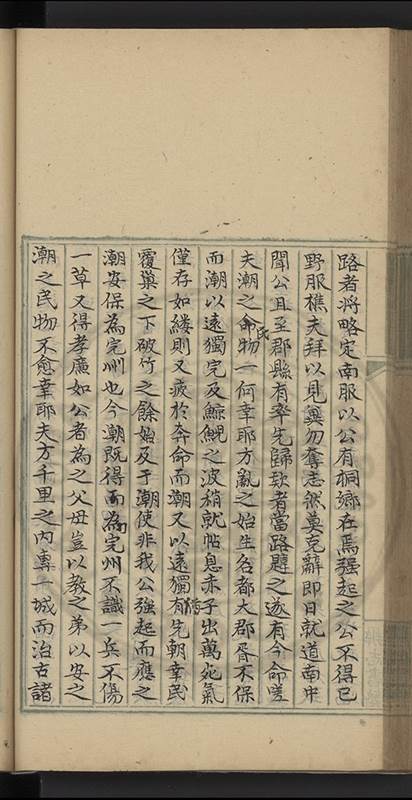 路者將略定南服以公有桐鄉在焉强起之公不得已
野服樵夫拜以見冀勿奪志然莫克辭即日就道南中
聞公且至郡縣有率先歸欵者當路韙之遂有今命嗟
夫潮之民物一何幸耶方亂之始生名都大郡胥不保
而潮以遠獨完及鯨鯢之波稍就帖息赤子出萬死氣
僅存如縷則又疲於奔命而潮又以遠獨有先朝幸民
覆巢之下破竹之餘始及于潮使非我公強起而應之
潮安保為完州也今潮既得而為完州不識一兵不傷
一草又得孝廉如公者為之父母豈以教之弟以安之
潮之民物不愈幸耶夫方千里之內專一城而治古諸